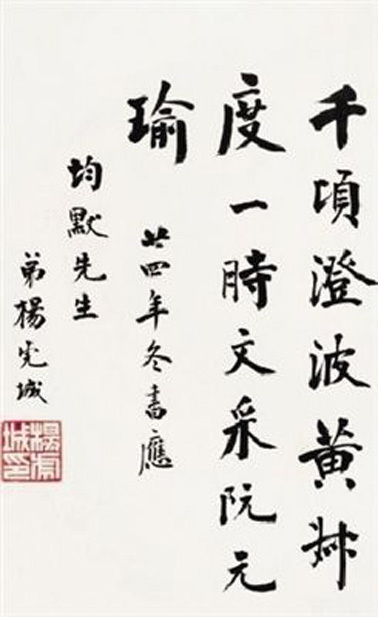 千頃澄波黃叔
度一時文采阮元
瑜 廿四年冬書應
均默先生
弟楊虎城
楊虎城印